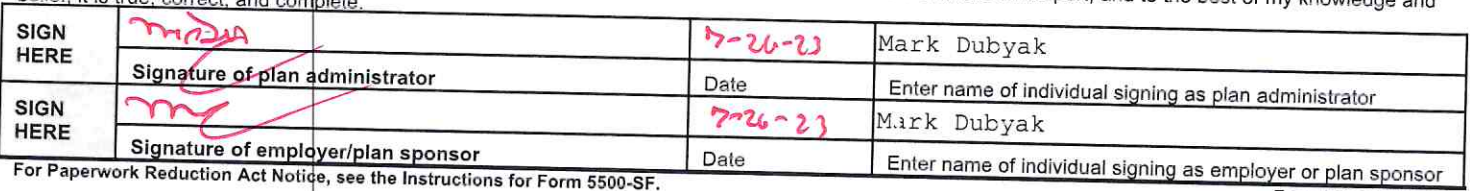 belief, it is true, correct, and complete.
and to the best of my knowledge and
SIGN HERE
7-26-23
Mark Dubyak
Signature of plan administrator
Date
Enter name of individual signing as plan administrator
SIGN HERE
7-26-23
Mark Dubyak
Signature of employer/plan sponsor
Date
Enter name of individual signing as employer or plan sponsor
For Paperwork Reduction Act Notice, see the Instructions for Form 5500-SF.